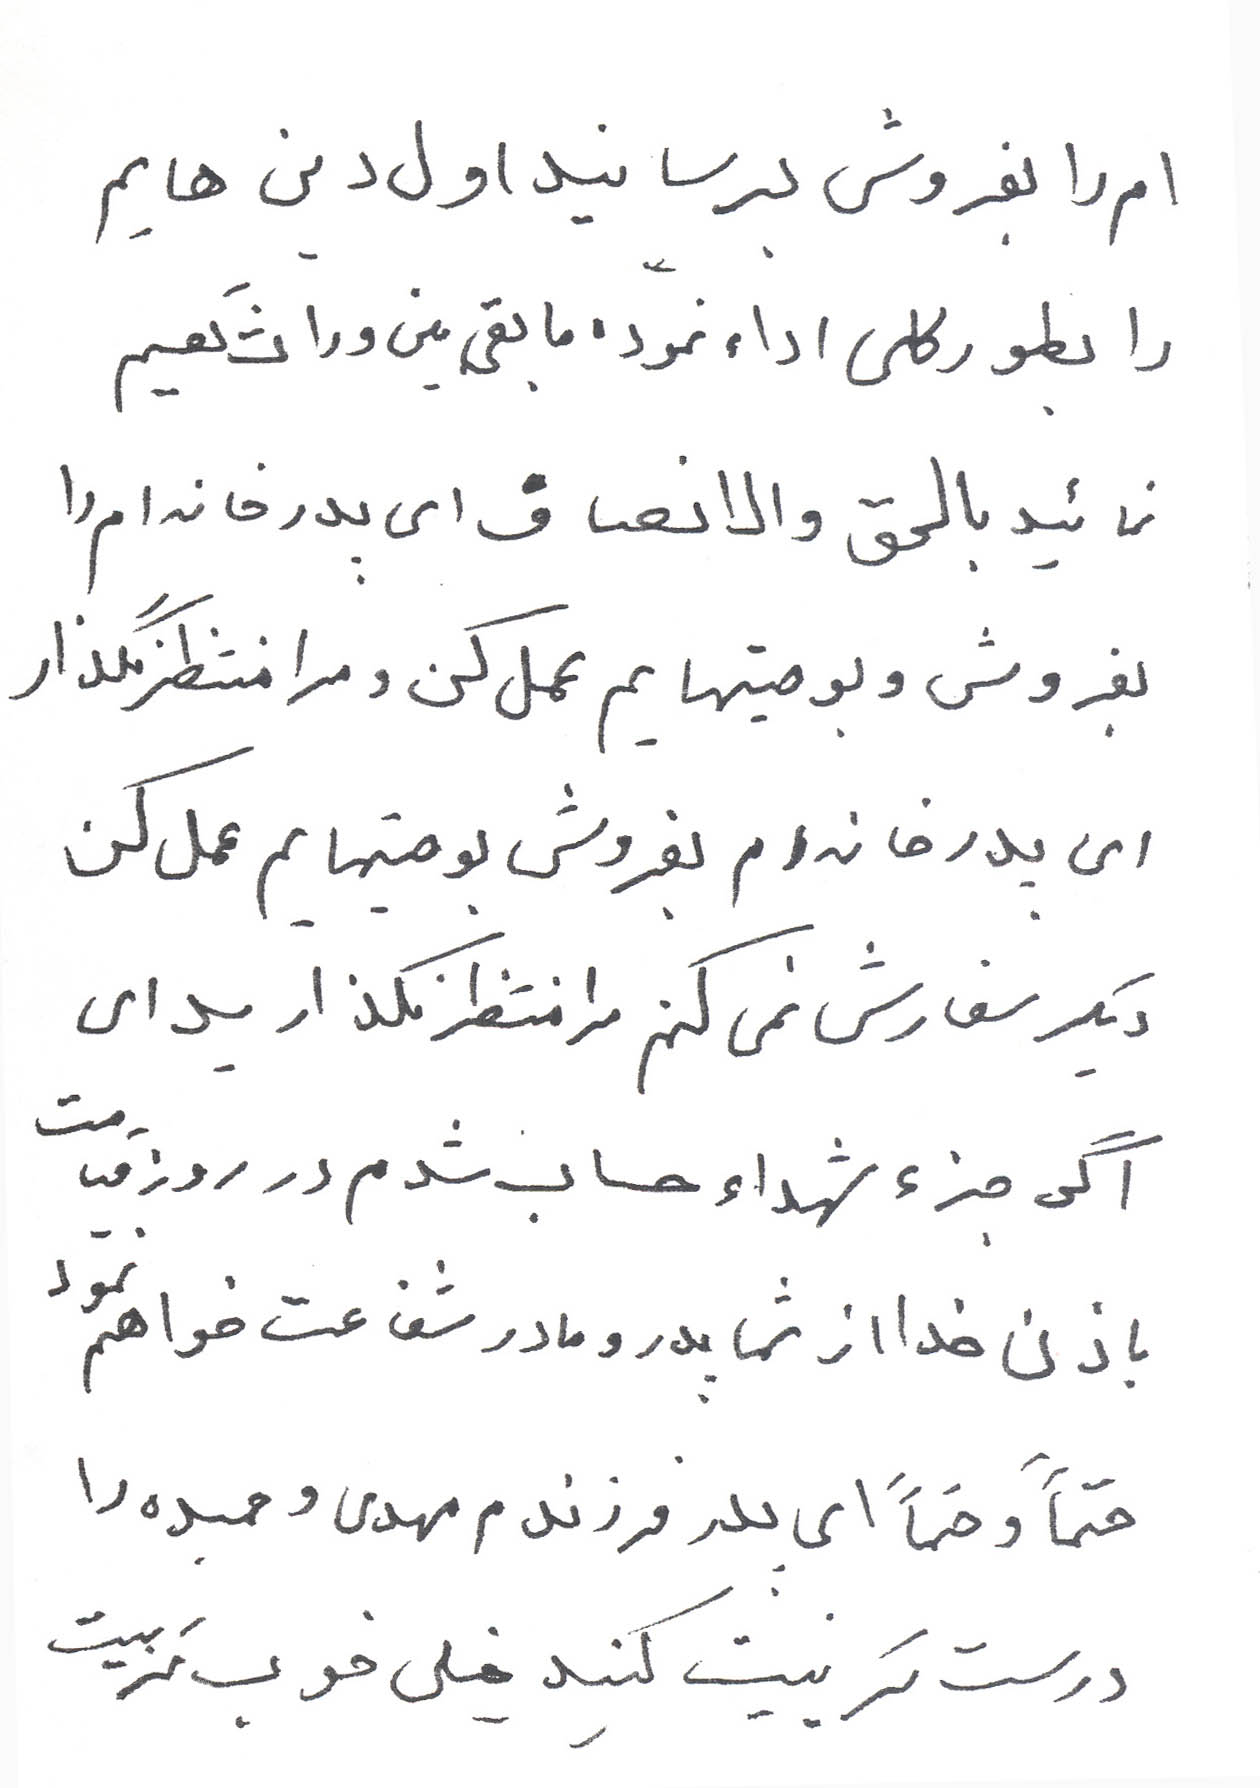 ام را بفروش برسانید اول دین هایم
را بطور کلی اداء نموده مابقی بین وراث تقسیم
نمائید بالحق والانصاف ای پدر خانه ام را
بفروش و بوصیتهایم عمل کن و مرا منتظر نگذار
ای پدر خانه ام بفروش بوصیتهایم عمل کن
دیگر سفارش نمی کنم مرا منتظر نگذارید ای
اگر جزء شهداء حساب شدم در روز قیامت
باذن خدا از شما پدر و مادر شفاعت خواهم نمود
حتماً و حتماً ای پدر فرزندم مهدی و حمیده را
درست تربیت کنید خیلی خوب تربیت